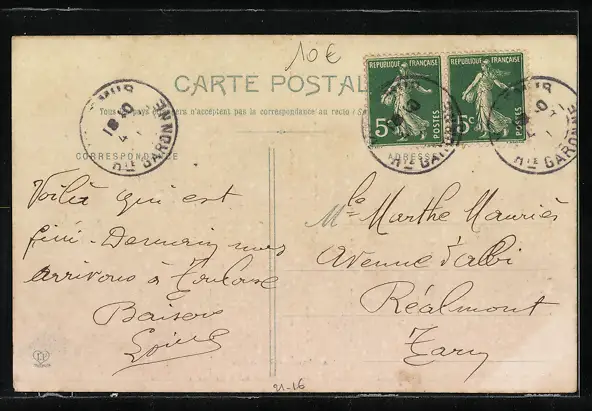 10€
CARTE POSTAL
RÉPUBLIQUE FRANÇAISE
5c
POSTES
RÉPUBLIQUE FRANÇAISE
5c
POSTES
HTE GARONNE
HTE GARONNE
HTE GARONNE
Tous les pays étrangers n'acceptent pas la correspondance au recto
CORRESPONDANCE
ADRESSE
Voilà qui est
fini. Demain nous
arrivons à Toulouse
Baisers
Mlle Marthe Mauriès
Avenue d'albi
Réalmont
Tarn
21-16